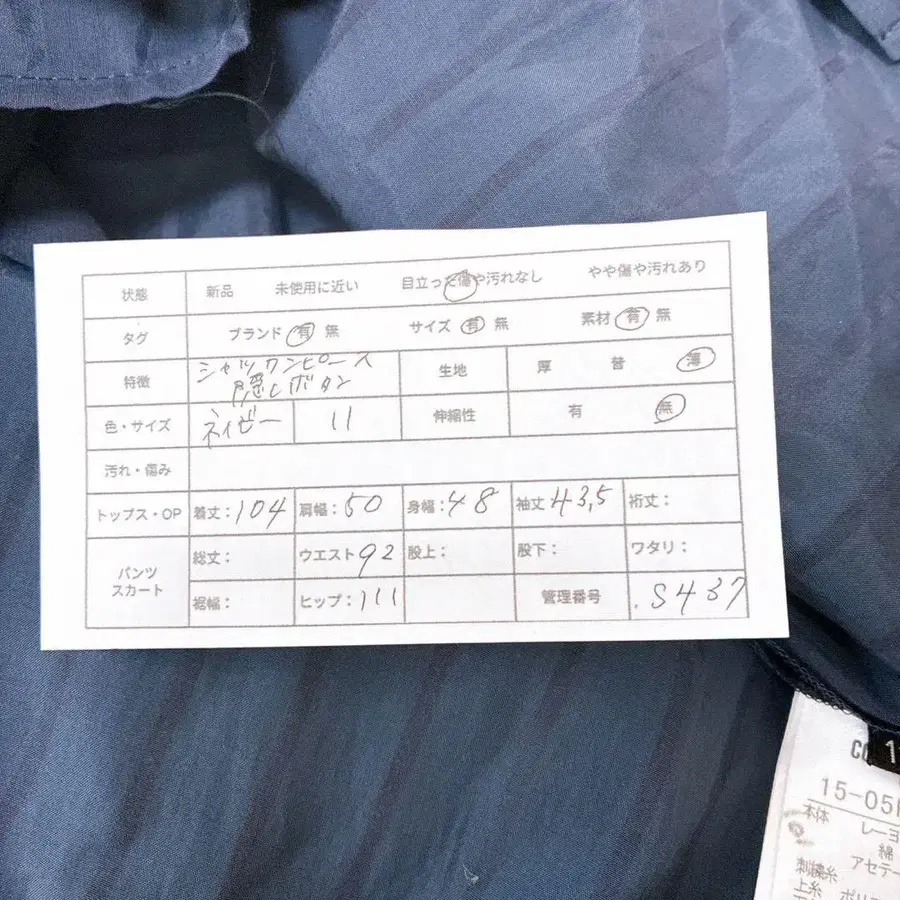 状態 新品 未使用に近い 目立った傷や汚れなし やや傷や汚れあり
タグ ブランド 有 無 サイズ 有 無 素材 有 無
特徴 シャツワンピース 隠しボタン 生地 厚 普 薄
色・サイズ ネイビー 11 伸縮性 有 無
汚れ・傷み
トップス・OP 着丈:104 肩幅:50 身幅:48 袖丈43,5 裄丈:
パンツ スカート 総丈: ウエスト92 股上: 股下: ワタリ:
裾幅: ヒップ:111 管理番号 S437
15-05
本体 レーヨ
綿
アセテー
刺繍糸
上糸 ポリ